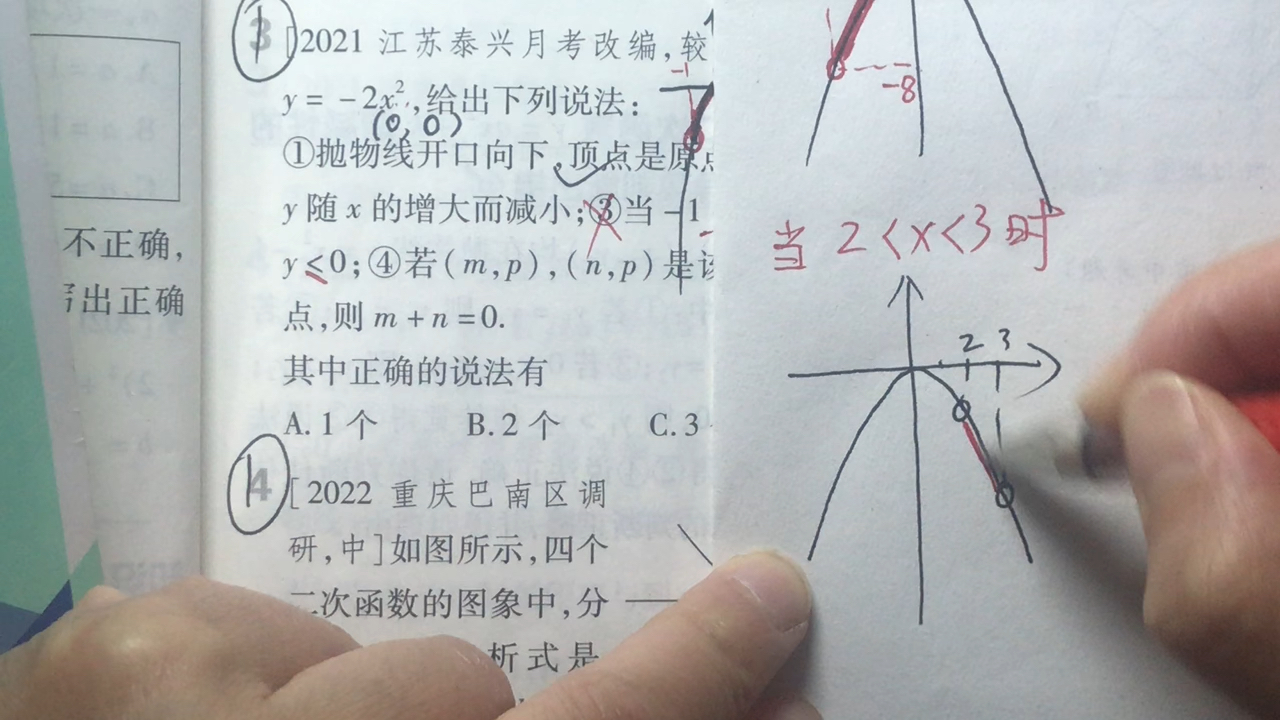 不正确，
写出正确
3 [2021 江苏泰兴月考改编，较
y = -2x²，给出下列说法：
(0, 0)
①抛物线开口向下，顶点是原点
y 随 x 的增大而减小；③当 -1
y ≤ 0；④若(m,p)，(n,p)是该
点，则 m + n = 0.
其中正确的说法有
A. 1 个 B. 2 个 C. 3
4 [2022 重庆巴南区调
研，中]如图所示，四个
二次函数的图象中，分
析式是
-1
-8
当 2 < x < 3 时
2 3